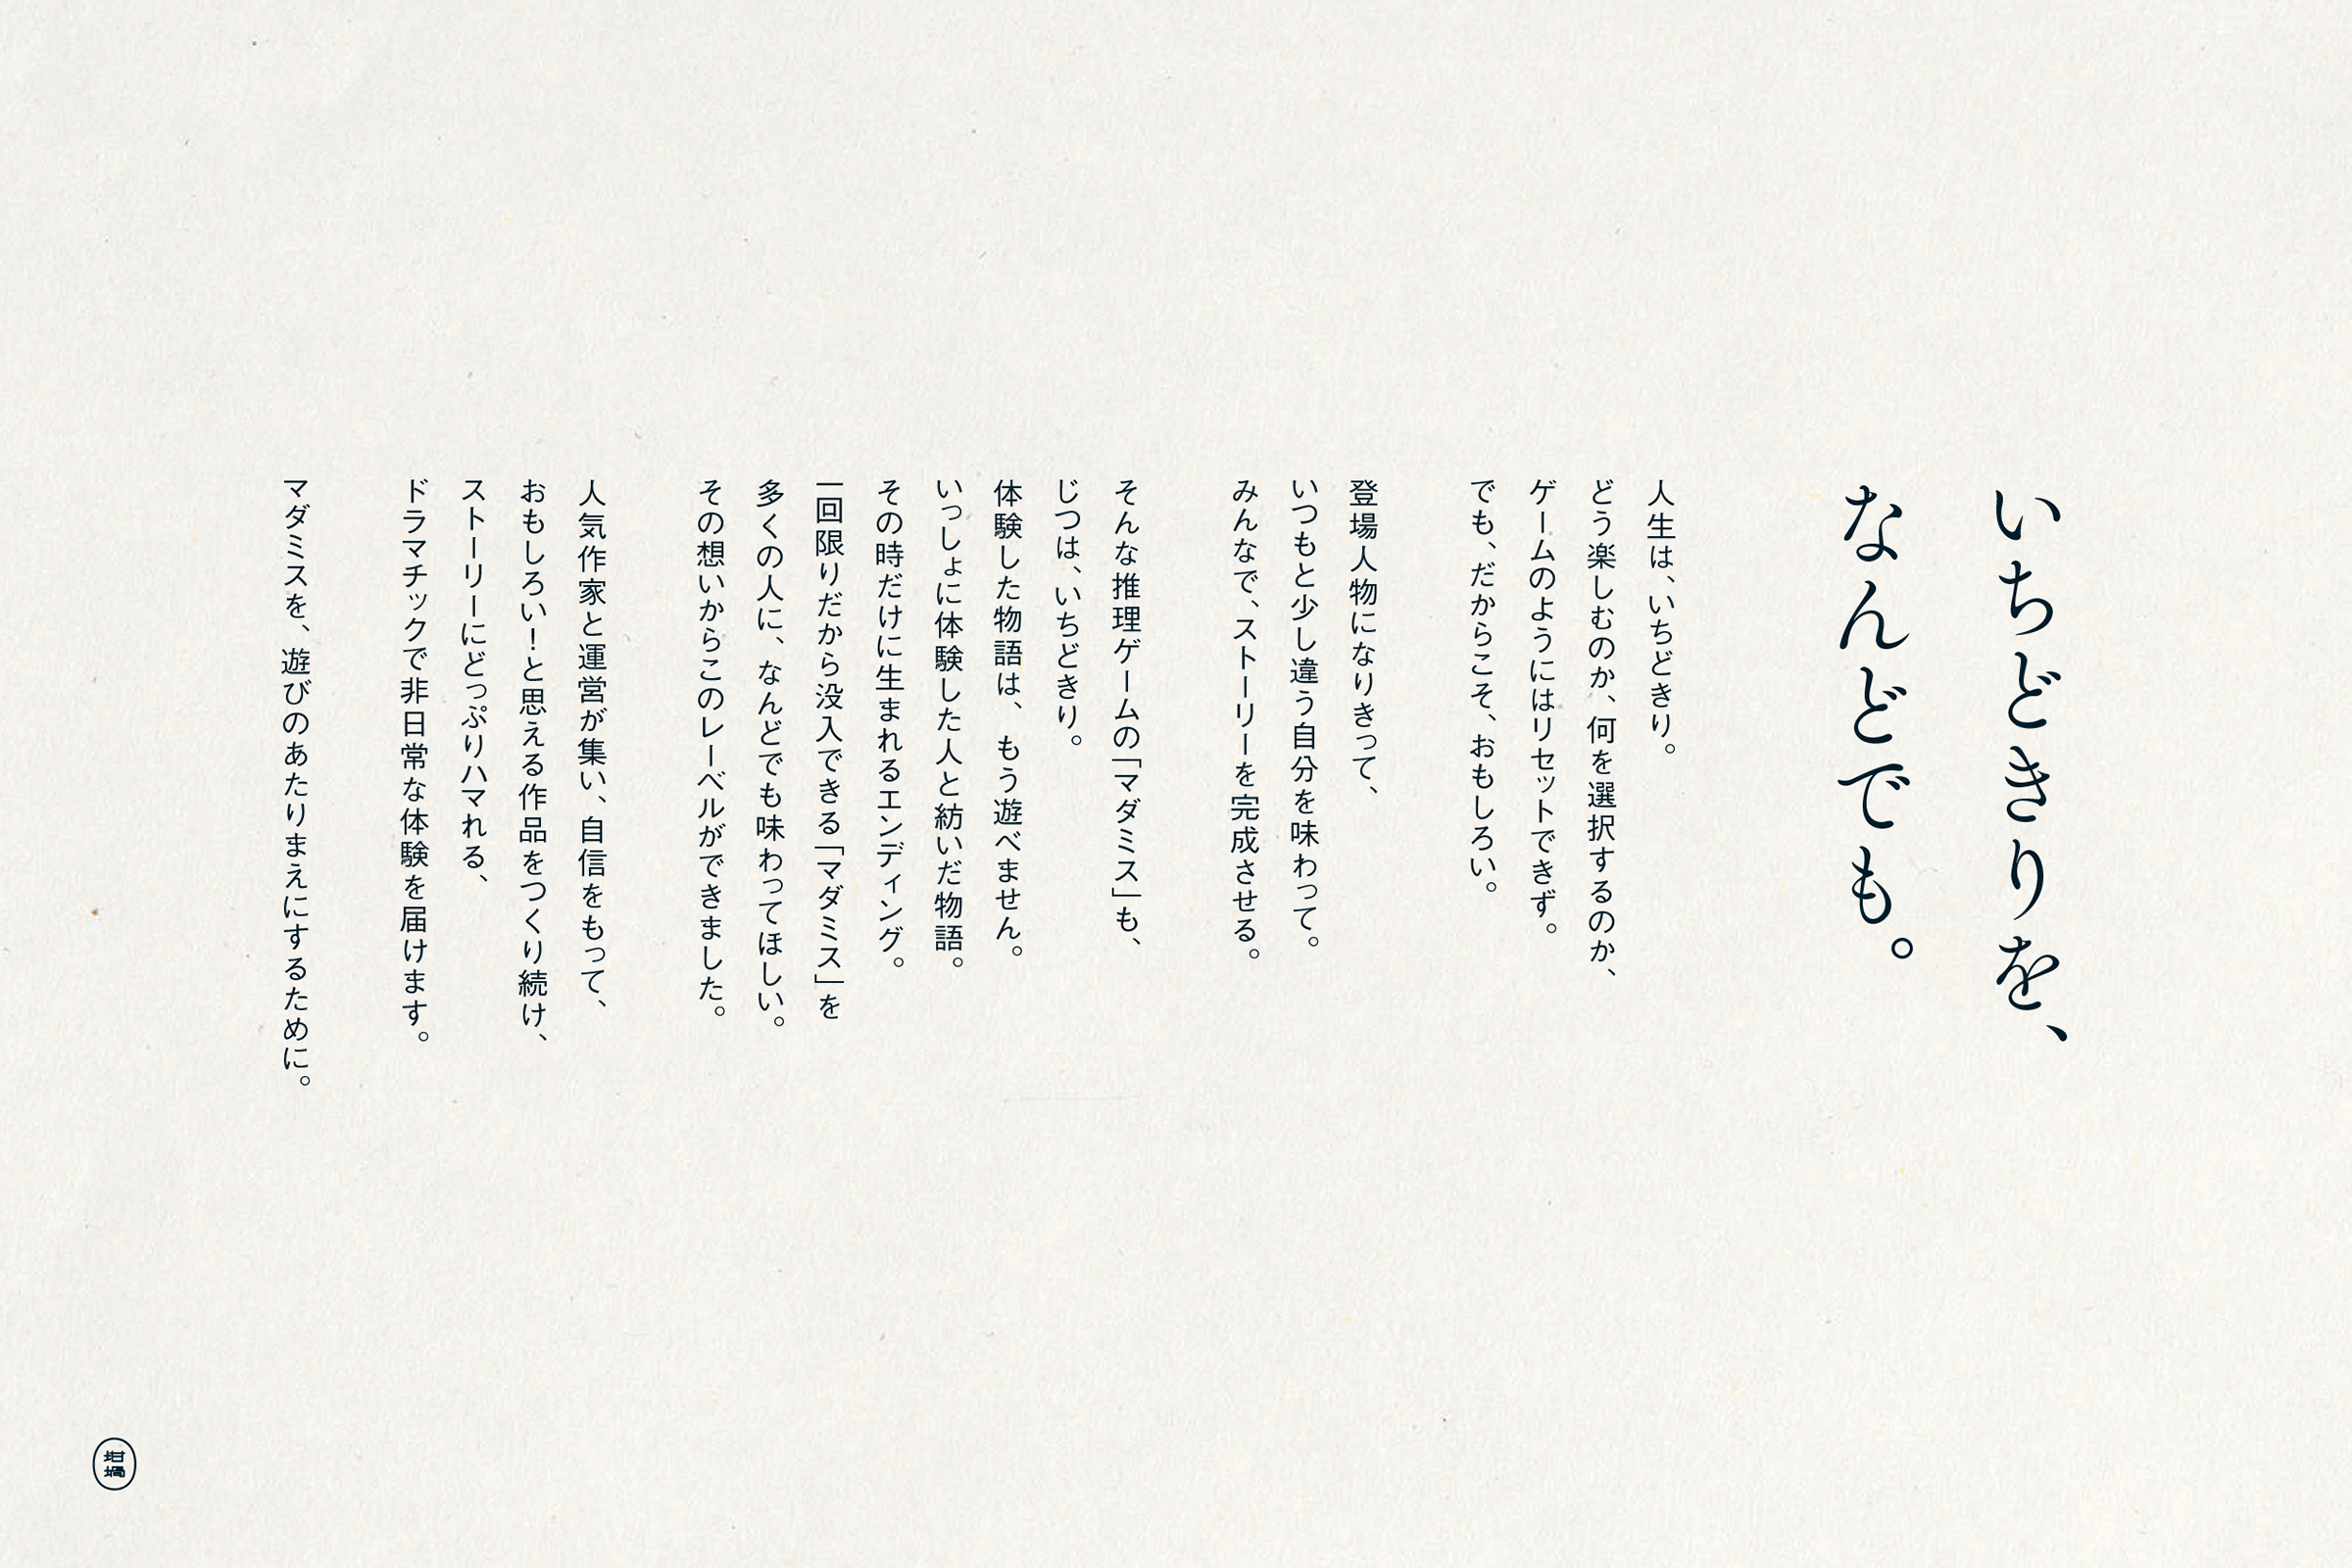 いちどきりを、
なんどでも。
人生は、いちどきり。
どう楽しむのか、何を選択するのか、
ゲームのようにはリセットできず。
でも、だからこそ、おもしろい。
登場人物になりきって、
いつもと少し違う自分を味わって。
みんなで、ストーリーを完成させる。
そんな推理ゲームの「マダミス」も、
じつは、いちどきり。
体験した物語は、もう遊べません。
いっしょに体験した人と紡いだ物語。
その時だけに生まれるエンディング。
一回限りだから没入できる「マダミス」を
多くの人に、なんどでも味わってほしい。
その想いからこのレーベルができました。
人気作家と運営が集い、自信をもって、
おもしろい！と思える作品をつくり続け、
ストーリーにどっぷりハマれる、
ドラマチックで非日常な体験を届けます。
マダミスを、遊びのあたりまえにするために。
坩堝